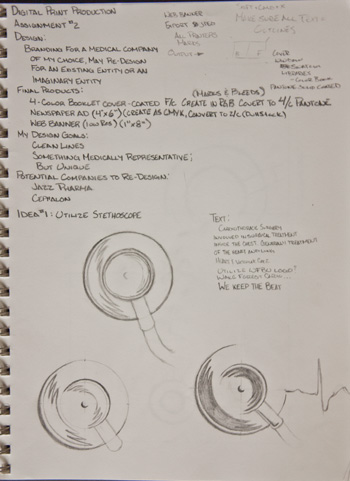 Digital Print Production
Assignment #2
Design:
Branding for a medical company
of my choice, may re-design
for an existing entity or an
imaginary entity
Final Products: (Marks & Bleeds)
4-color Booklet Cover-coated F/C Create in RGB Convert to 4/C Pantone
Newspaper Ad (4"x6") (Create as CMYK, Convert to 2/C
Web Banner (low res) (1"x8")
My Design Goals:
Clean Lines
Something Medically Representative;
But Unique
Potential Companies to Re-Design:
Jazz Pharma
Cephalon
Idea #1: Utilize Stethoscope
Web Banner
Export
All Printers
Marks
Output
Measure all Text
Outlines
Cover
Libraries
Color Books
Pantone Solid Coated
Text:
Cardiothoracic Surgery
involved in surgical treatment
inside the chest. Generally treatment
of the heart and lungs
Heart
Utilize
We Keep the Beat